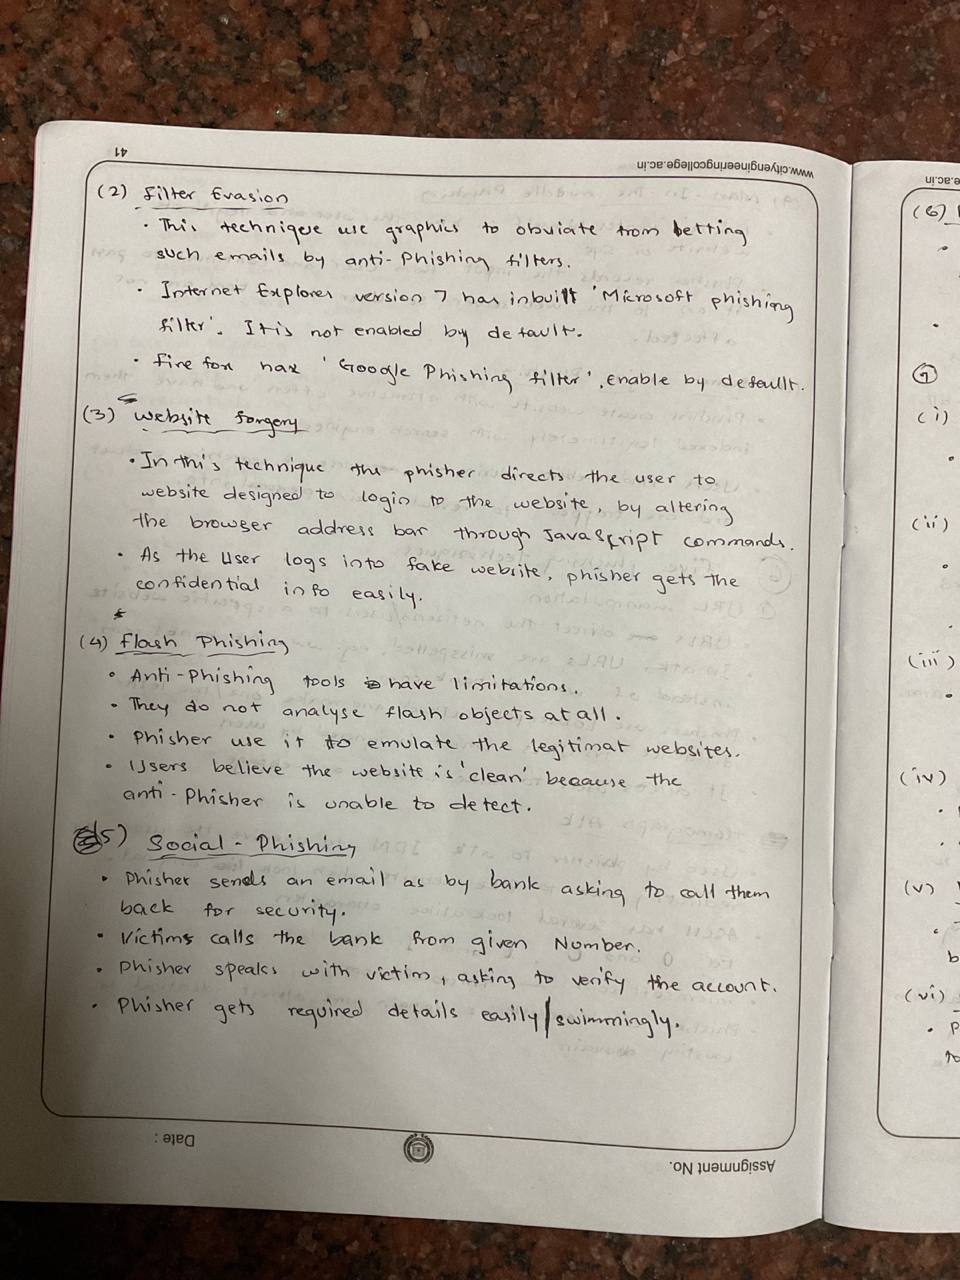 41
www.cityengineeringcollege.ac.in
(2) Filter Evasion
• This technique use graphics to obviate from betting
such emails by anti-Phishing filters.
• Internet Explorer version 7 has inbuilt 'Microsoft phishing
filter'. It is not enabled by default.
• Fire fox has 'Google Phishing filter', enable by default.
(3) Website Forgery
• In this technique the phisher directs the user to
website designed to login to the website, by altering
the browser address bar through JavaScript commands.
• As the User logs into fake website, phisher gets the
confidential info easily.
(4) Flash Phishing
• Anti-Phishing tools have limitations.
• They do not analyse flash objects at all.
• Phisher use it to emulate the legitimat websites.
• Users believe the website is 'clean' because the
anti-Phisher is unable to detect.
5) Social-Phishing
• Phisher sends an email as by bank asking to call them
back for security.
• Victims calls the bank from given Number.
• Phisher speaks with victim, asking to verify the account.
• Phisher gets required details easily/swimmingly.
Assignment No.
Date :
ac.in
(6)
(7)
(i)
(ii)
(iii)
(iv)
(v)
b
(vi)
• P